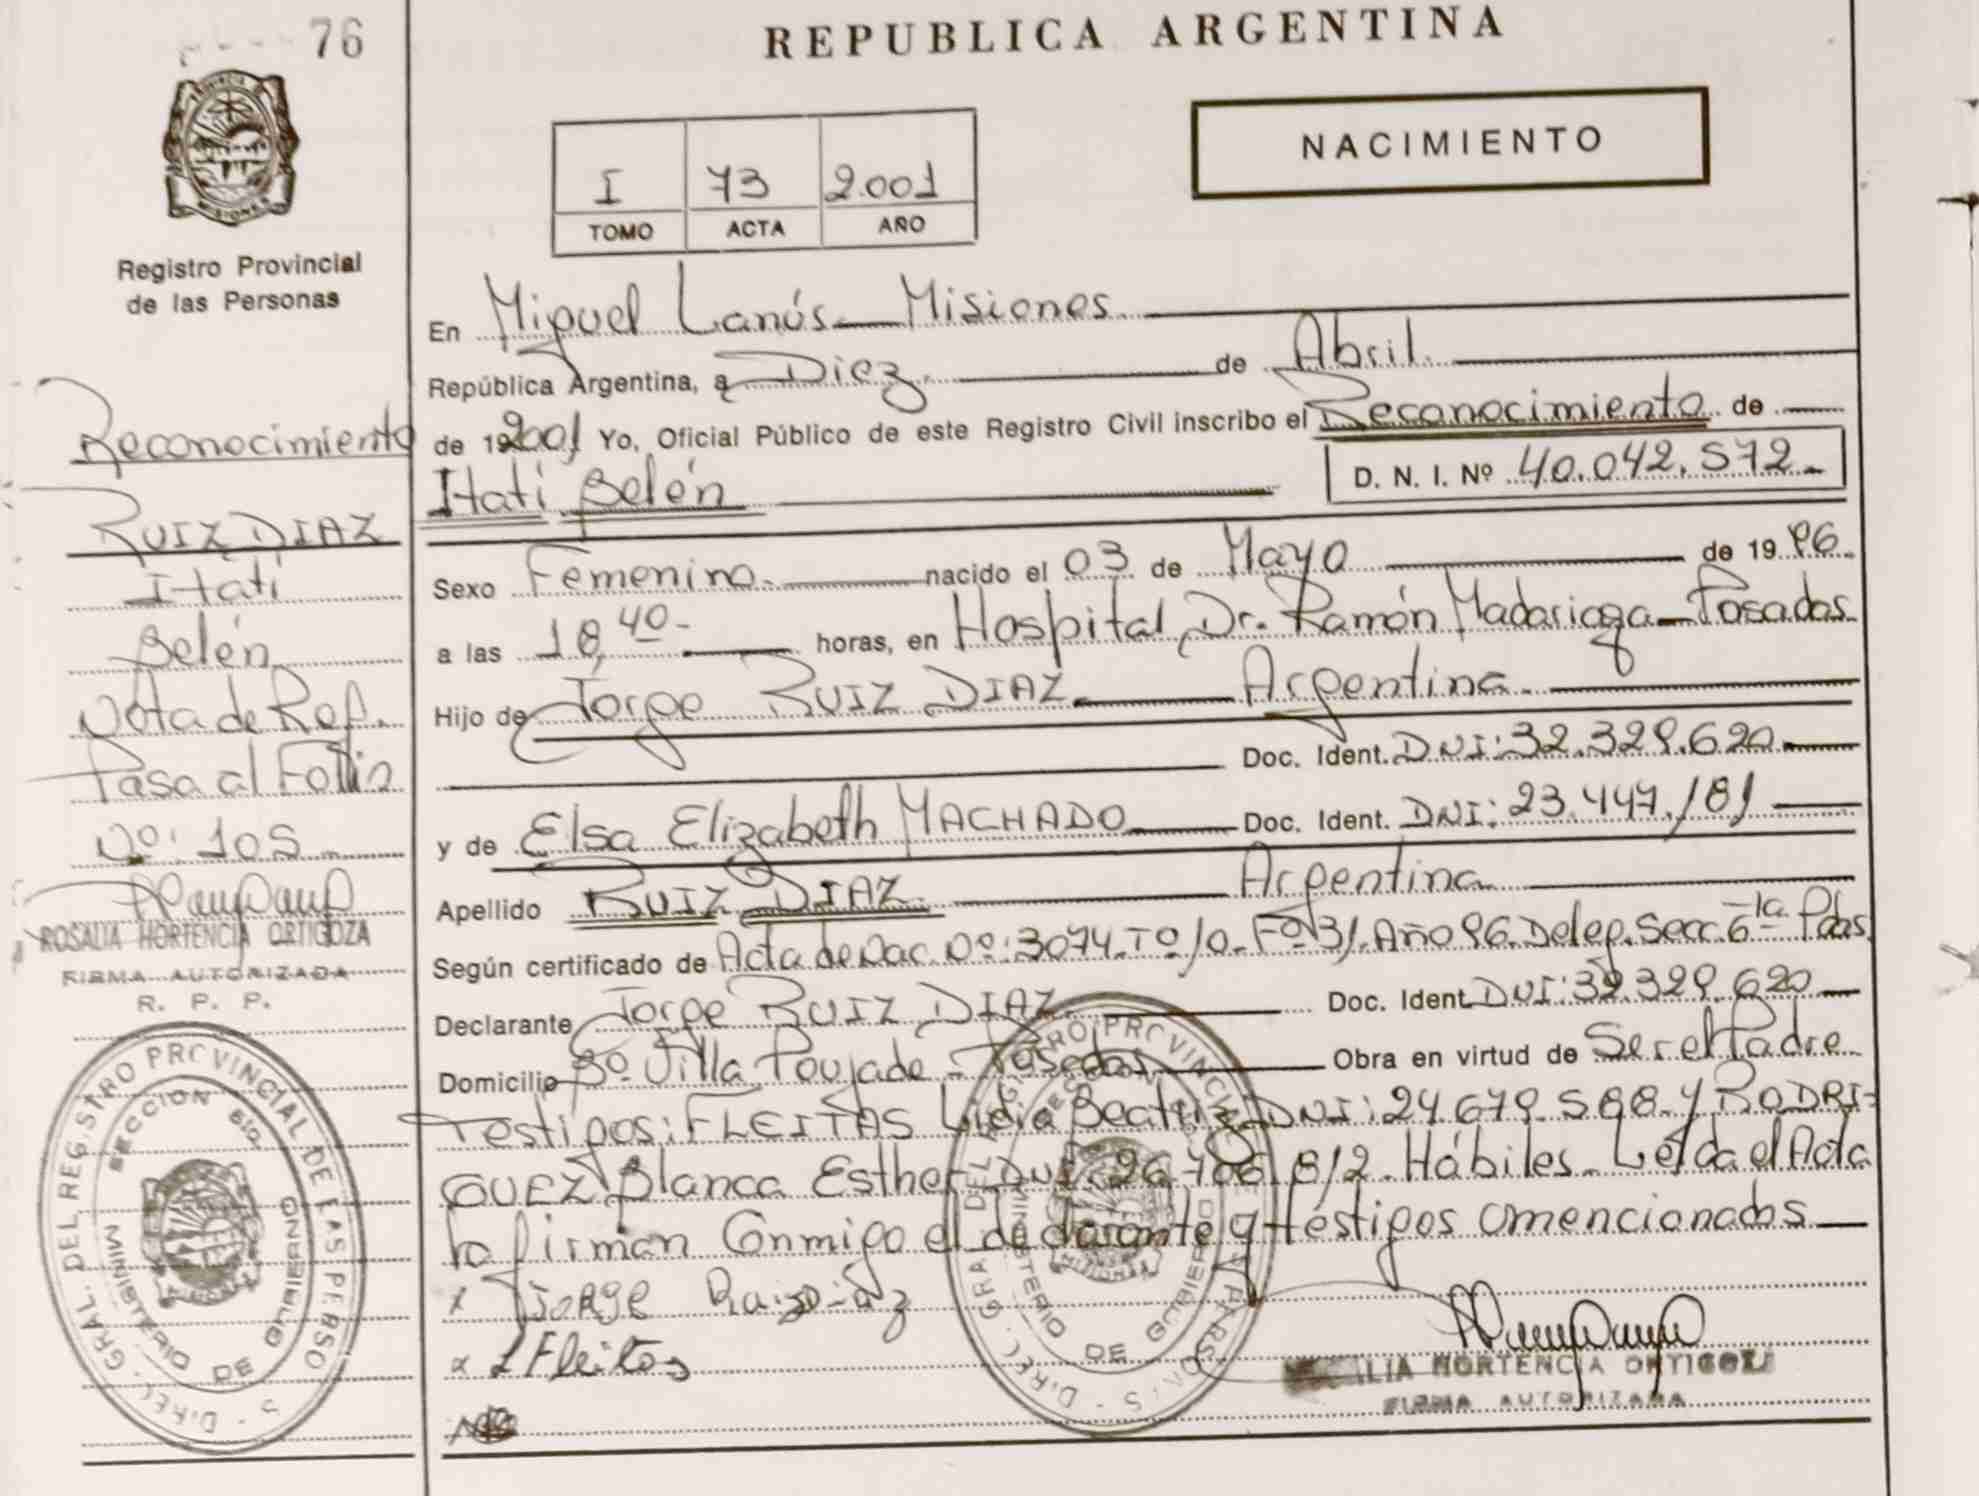 76
REPUBLICA ARGENTINA
NACIMIENTO
I 73 2.001
TOMO ACTA AÑO
Registro Provincial
de las Personas
Reconocimiento
RUIZ DIAZ
Itatí
Belén
Nota de Ref.
Pasa al Folio
Nº: 105
ROSALIA HORTENCIA ORTIGOZA
FIRMA AUTORIZADA
R. P. P.
En Miguel Lanús - Misiones
República Argentina, a Diez de Abril
de 192001 Yo, Oficial Público de este Registro Civil inscribo el Reconocimiento de
Itatí Belén D. N. I. Nº 40.042.572
Sexo Femenino nacido el 03 de Mayo de 1996
a las 18,40 horas, en Hospital Dr. Ramón Madariaga - Posadas
Hijo de Jorge RUIZ DIAZ Argentina
Doc. Ident. DNI: 32.329.620
y de Elsa Elizabeth MACHADO Doc. Ident. DNI: 23.447.181
Apellido RUIZ DIAZ Argentina
Según certificado de Acta de Nac. Nº: 3074. Tº 10. Fº 31. Año 96. Deleg. Secc. 6ª Pdas
Declarante Jorge RUIZ DIAZ Doc. Ident. DNI: 32.329.620
Domicilio Bº Villa Poujade - Posadas Obra en virtud de Ser el Padre
Testigos: FLEITAS Lidia Beatriz DNI: 24.679.588 y RODRI=
GUEZ Blanca Esther DNI: 26.706.812. Hábiles. Leída el Acta
la firman Conmigo el declarante y testigos amencionados
x Jorge Ruiz Diaz
x L Fleitas
HORTENCIA ORTIGOZA
FIRMA AUTORIZADA
DIREC. GRAL. DEL REGISTRO PROVINCIAL DE LAS PERSONAS
MINISTERIO DE GOBIERNO